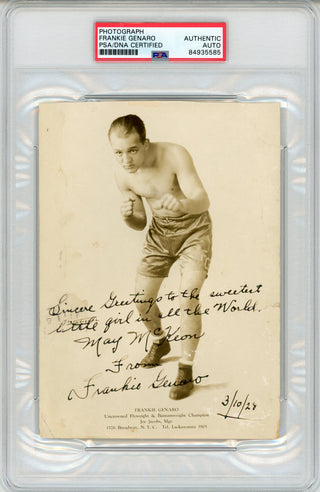 PHOTOGRAPH
FRANKIE GENARO
PSA/DNA CERTIFIED
AUTHENTIC
AUTO
84935585
PSA
Sincere Greetings to the sweetest
little girl in all the World.
May McKeon
From
Frankie Genaro
3/10/28
FRANKIE GENARO
Uncrowned Flyweight & Bantamweight Champion
Joe Jacobs, Mgr.
1576 Broadway, N. Y. C. Tel. Lackawanna